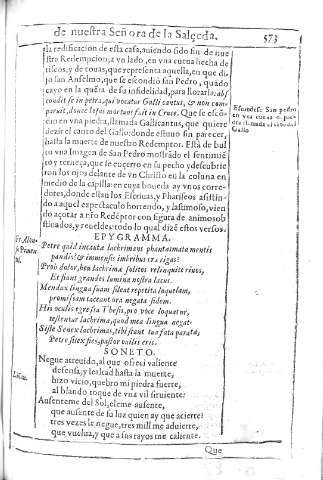 de nuestra Señora de la Salceda. 573
la redificacion de esta casa, auiendo sido sin de nue
stro Redemptor; a vn lado, en vna cueua hecha de
riscos, y de couas, que representa aquella, en que di
jo san Anselmo, que se escondió san Pedro, quãdo
cayo en la queſta de su infidelidad, para llorarla: abs
condit se in petra, qui vocatur Galli cantus, & non comparuit, donec Iesus mortuus fuit in Cruce. Que se escõ
dio en vna piedra, llamada Gallicantus, que quiere
dezir el canto del Gallo: donde estuuo sin parecer,
hasta la muerte de nuestro Redemptor. Està de bul
to vna Imagen de San Pedro mostrãdo el sentimiẽ
to y terneça, que se encerro en su pecho y descubrie
ron los ojos delante de vn Christo en la coluna en
medio de la capilla: en cuya boueda ay vnos corre-
dores, donde estan los Escriuas, y Phariseos asistien
do a aquel espectaculo horrendo, y lastimoso, vien
do açotar a nrõ Redẽptor con figura de animosob
stinados, y reueldes: todo lo qual dizẽ estos versos.
Escondese San pedro
en vna cueua
llamada el canto del
Gallo
EPYGRAMMA.
Petre quid incauta lachrimans phantasmata mentis
pandis? & immensis imbribus ora rigas?
Proh dolor, heu lachrimæ solitos relinquite riuos,
Et fiant grandes lumina nostra lacus.
Mendax lingua suam sileat repetita loquelam,
promissam taceant ora negata fidem.
His oculis egressa Thesis, pro voce loquatur,
testentur lachrimæ, quod mea lingua negat.
Siste Senex lachrimas, tibi stant tua fata parata,
Petre si ex fies, pastor ouilis eris.
SONETO.
Negue atreuido, al que ofreci valiente
defensa, y lealtad hasta la muerte,
hizo vicio, quebro mi piedra fuerte,
al blando toque de vna vil siruiente;
Ausenteme del Sol, eleme ausente,
que ausente de su luz quien ay que acierte?
tres vezes le negue, tres mill me aduierte,
que vuelua, y que a sus rayos me caliente.
Que